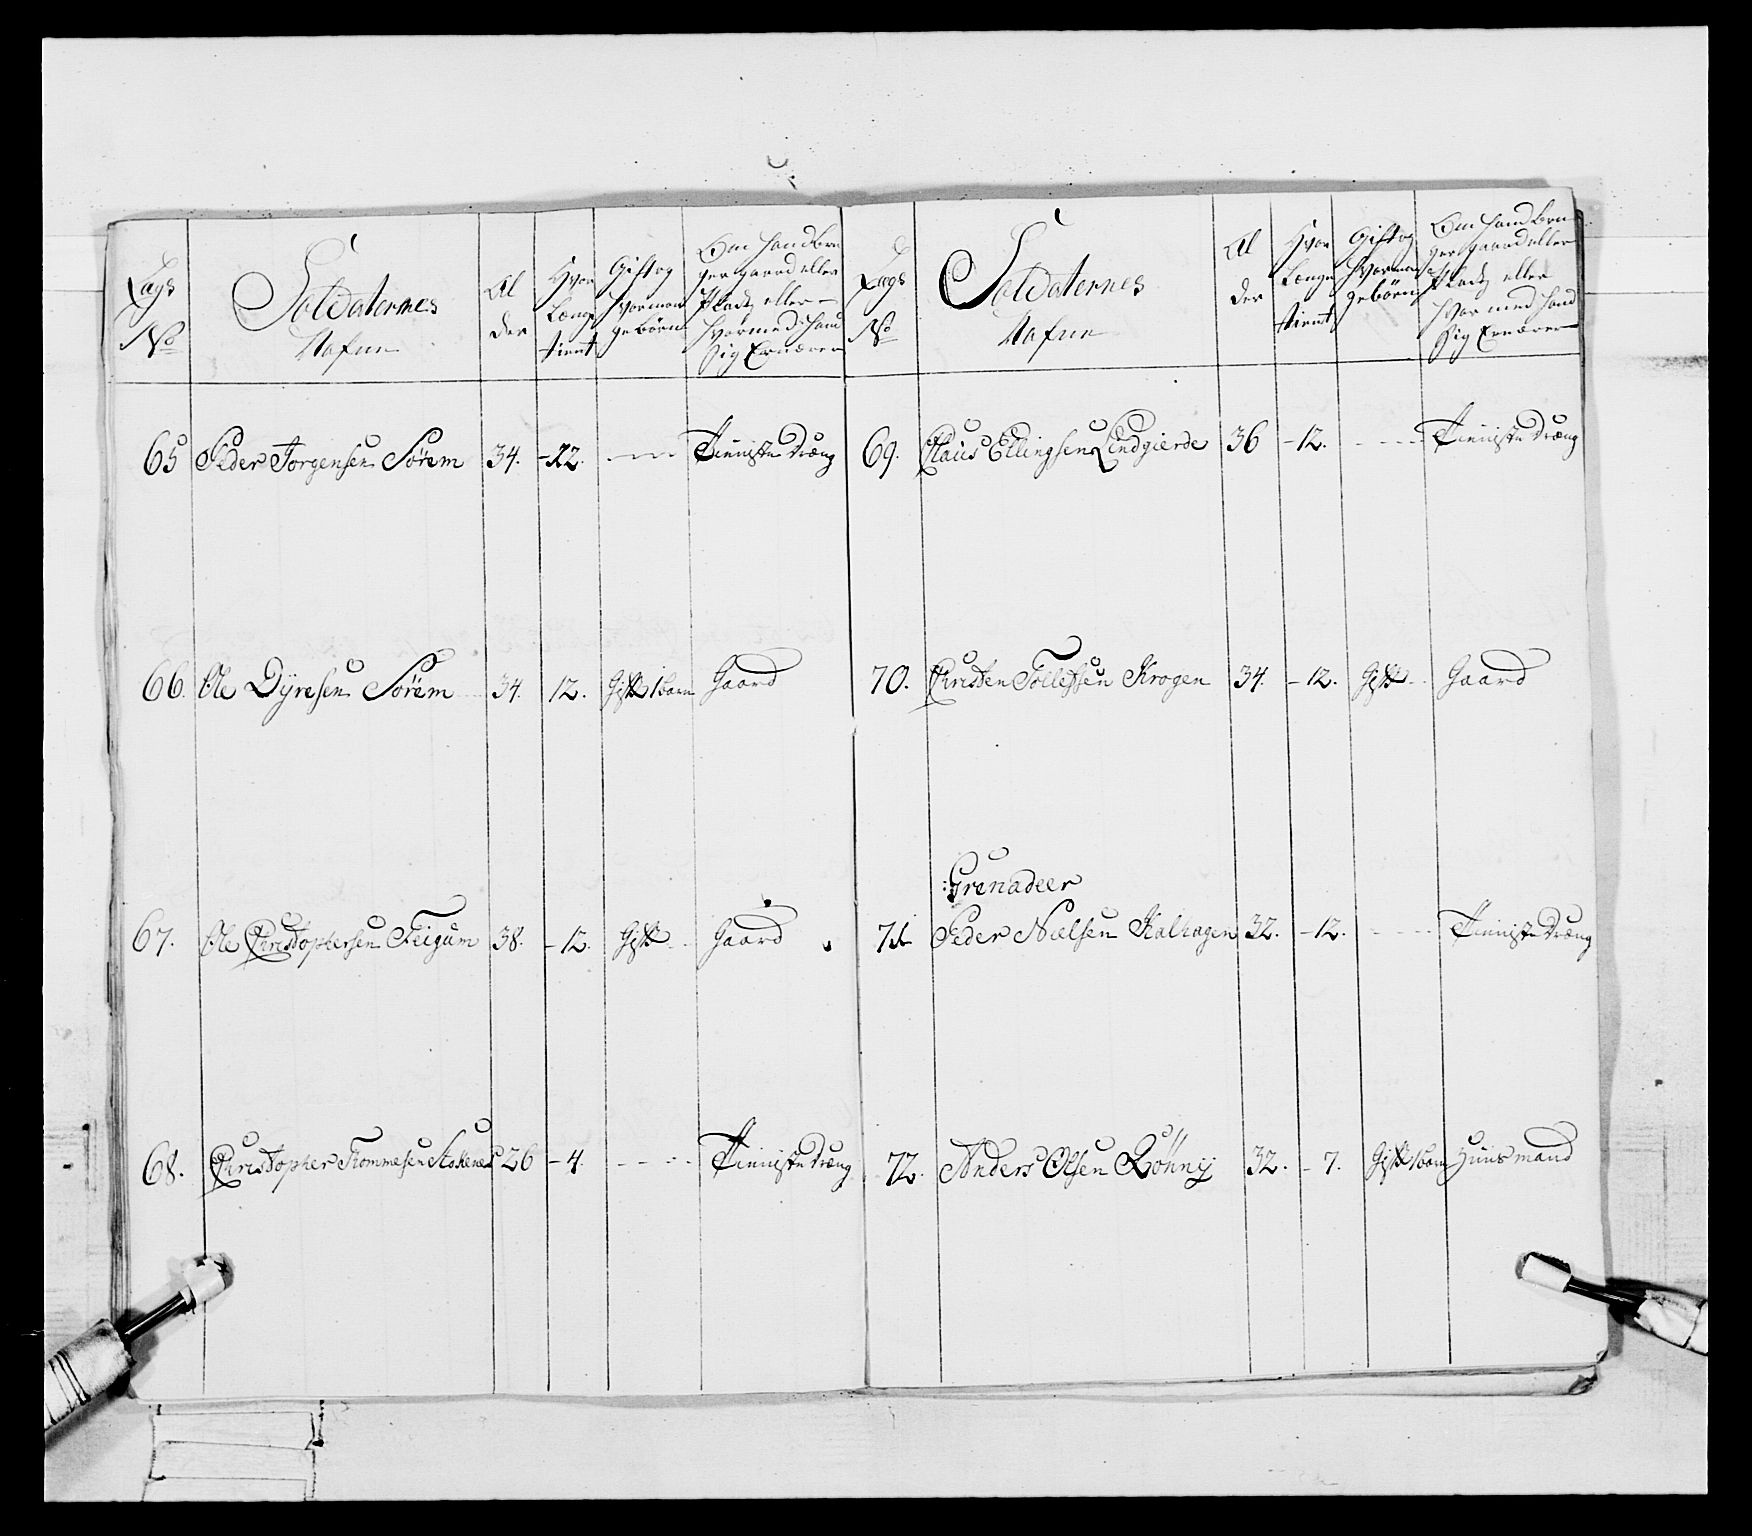 Lægs
No
Soldaternes
Nafne
Al
der
Hvor
Længe
tient
Gift og
hvor man
ge börn
Om hand bru
ger gaard eller
Plads eller
hvormed hand
sig Ernærer
65 Peder Jorgensen Sörem 34. -22. - - - Tieniste Dræng
66. Ole Dyresen Sörem 34. 12. Gift 1 barn Gaard
67. Ole Christophersen Feigum 38. -12. Gift Gaard
68. Christopher Tommesen 26 -4. - - - - Tieniste Dræng
Lægs
No
Soldaternes
Nafne
Al
der
Hvor
Længe
tient
Gift og
hvor man
ge börn
Om hand bru
ger gaard eller
Plads eller
hvor med hand
sig Ernærer
69. Claus Ellingsen Lindgierde 36 -12. - - - - Tieniste Dræng
70. Christen Tollefsen Krogen 34. -12. Gift Gaard
Grenadeer
71 Peder Nielsen Kalhagen 32. -12. - - - - Tieniste Dræng
72. Anders Olsen Röhnij 32. -7. Gift 1 barn Huusmand